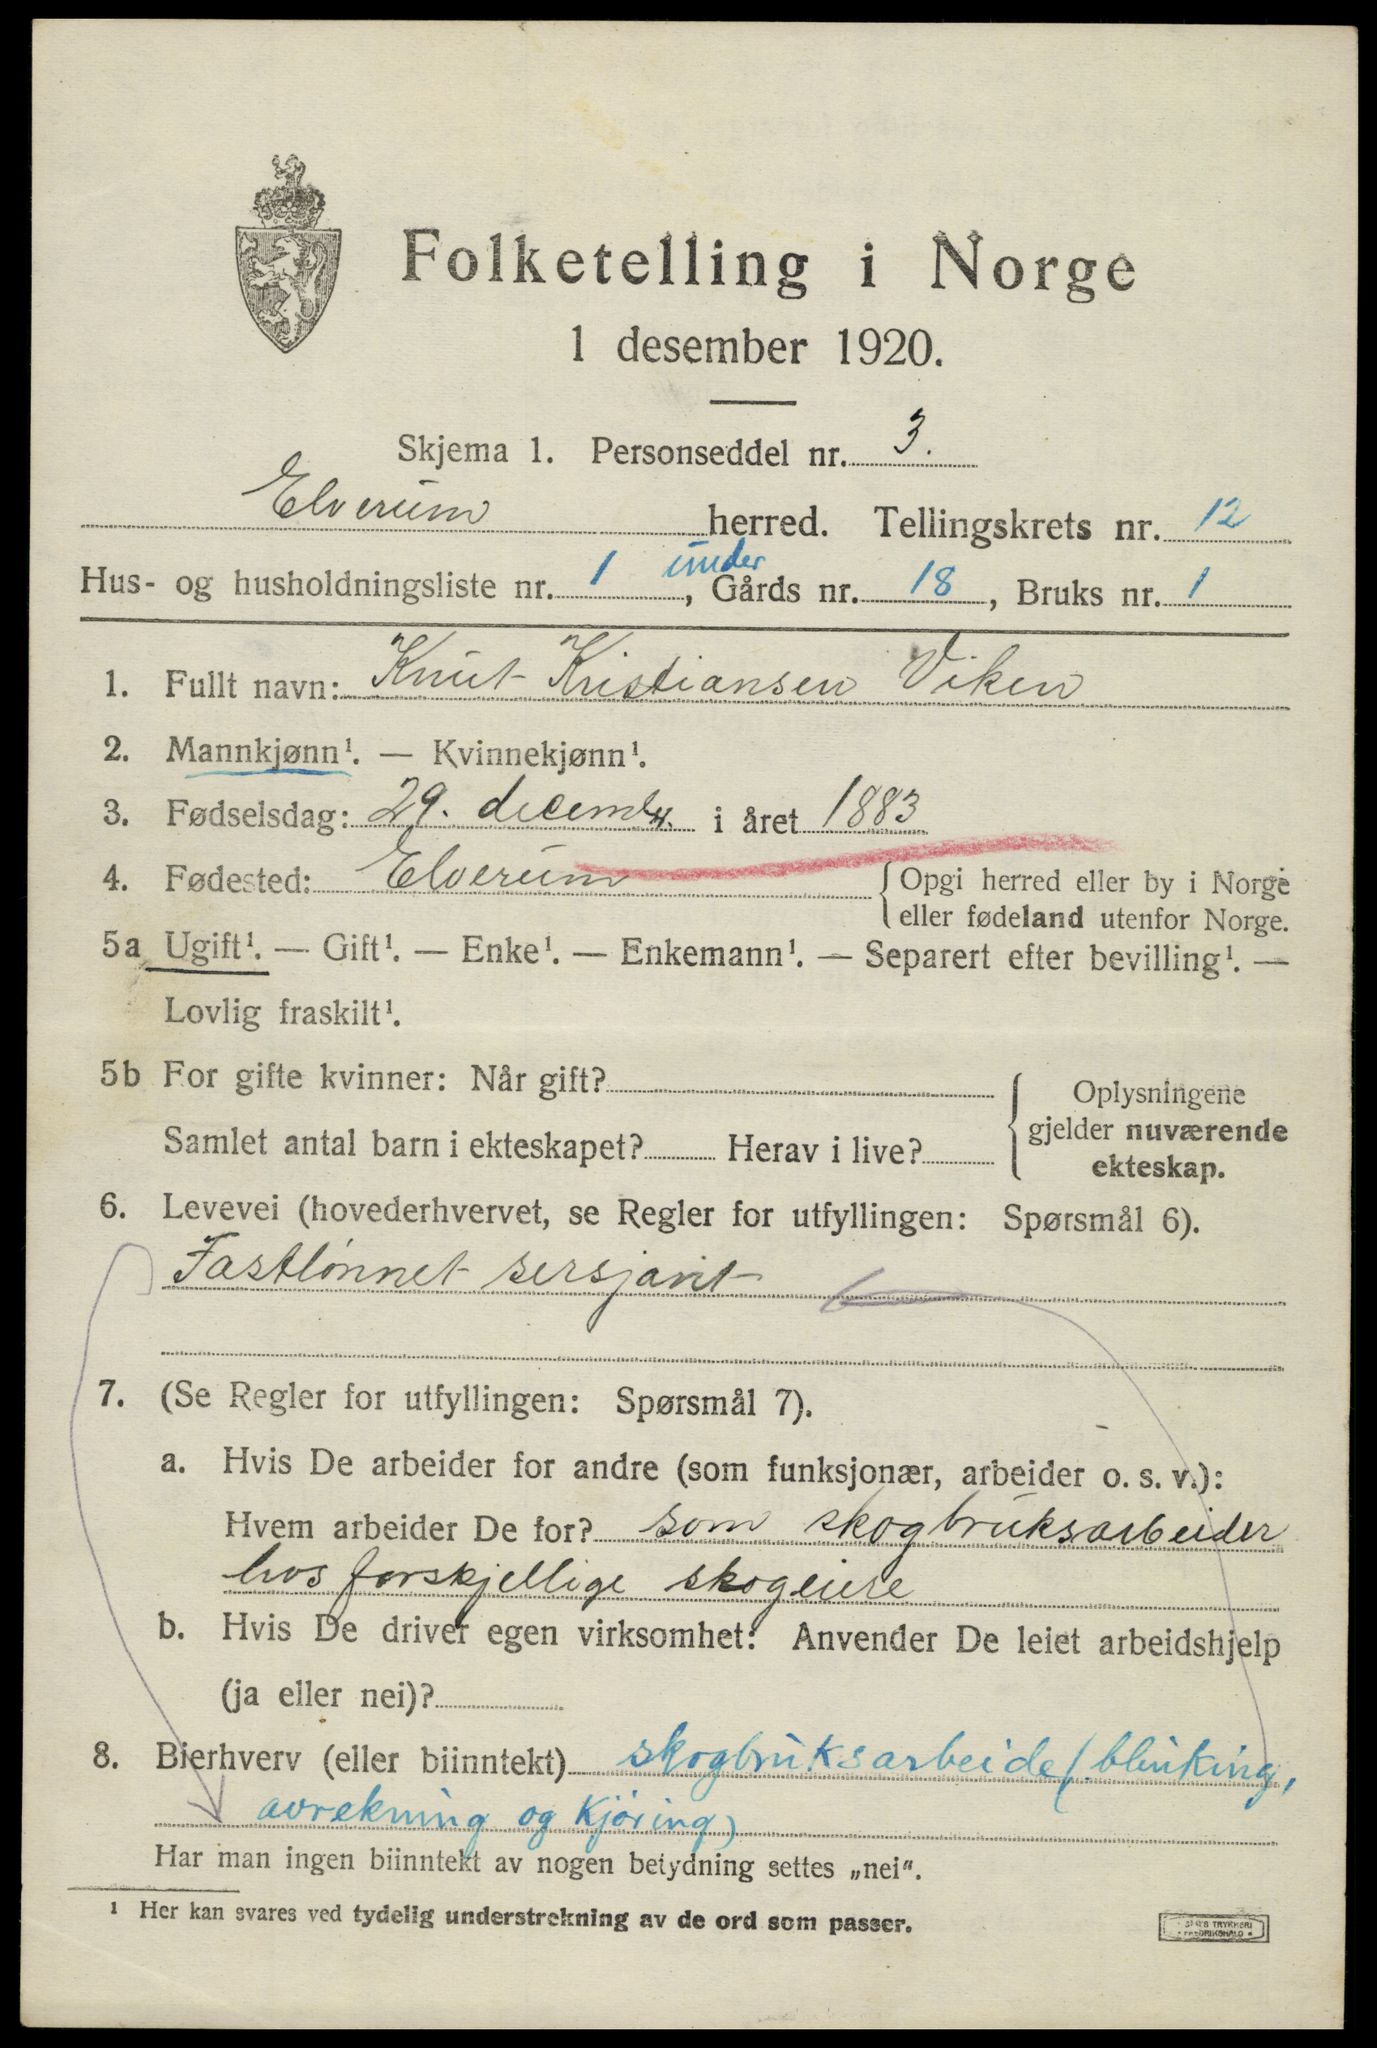 Folketelling i Norge
1 desember 1920.
Skjema 1. Personseddel nr. 3.
Elverum herred. Tellingskrets nr. 12
Hus- og husholdningsliste nr. 1 under, Gårds nr. 18, Bruks nr. 1
1. Fullt navn: Knut Kristiansen Viken
2. Mannkjønn¹. — Kvinnekjønn¹.
3. Fødselsdag: 29. decembr. i året 1883
4. Fødested: Elverum {Opgi herred eller by i Norge
eller fødeland utenfor Norge.
5a Ugift¹. — Gift¹. — Enke¹. — Enkemann¹. — Separert efter bevilling¹. —
Lovlig fraskilt¹.
5b For gifte kvinner: Når gift?
Samlet antal barn i ekteskapet? Herav i live?
Oplysningene
gjelder nuværende
ekteskap.
6. Levevei (hovederhvervet, se Regler for utfyllingen: Spørsmål 6).
Fastlønnet sersjant
7. (Se Regler for utfyllingen: Spørsmål 7).
a. Hvis De arbeider for andre (som funksjonær, arbeider o. s. v.):
Hvem arbeider De for? som skogbruksarbeider
hos forskjellige skogeiere
b. Hvis De driver egen virksomhet: Anvender De leiet arbeidshjelp
(ja eller nei)?
8. Bierhverv (eller biinntekt) skogbruksarbeide (blinking,
avrekning og kjøring)
Har man ingen biinntekt av nogen betydning settes „nei“.
¹ Her kan svares ved tydelig understrekning av de ord som passer.
TRYKKERI
FREDRIKSHALD